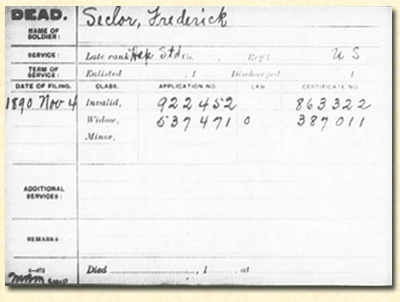 DEAD. Seclor, Frederick
NAME OF SOLDIER:
SERVICE: Late rank Hosp Std Co. , Reg't U S
TERM OF SERVICE: Enlisted , 1 Discharged , 1
DATE OF FILING. CLASS. APPLICATION NO. LAW. CERTIFICATE NO.
1890 Nov 4 Invalid, 922452 863322
Widow, 537471 0 387011
Minor,
ADDITIONAL SERVICES:
REMARKS:
Died , 1 , at